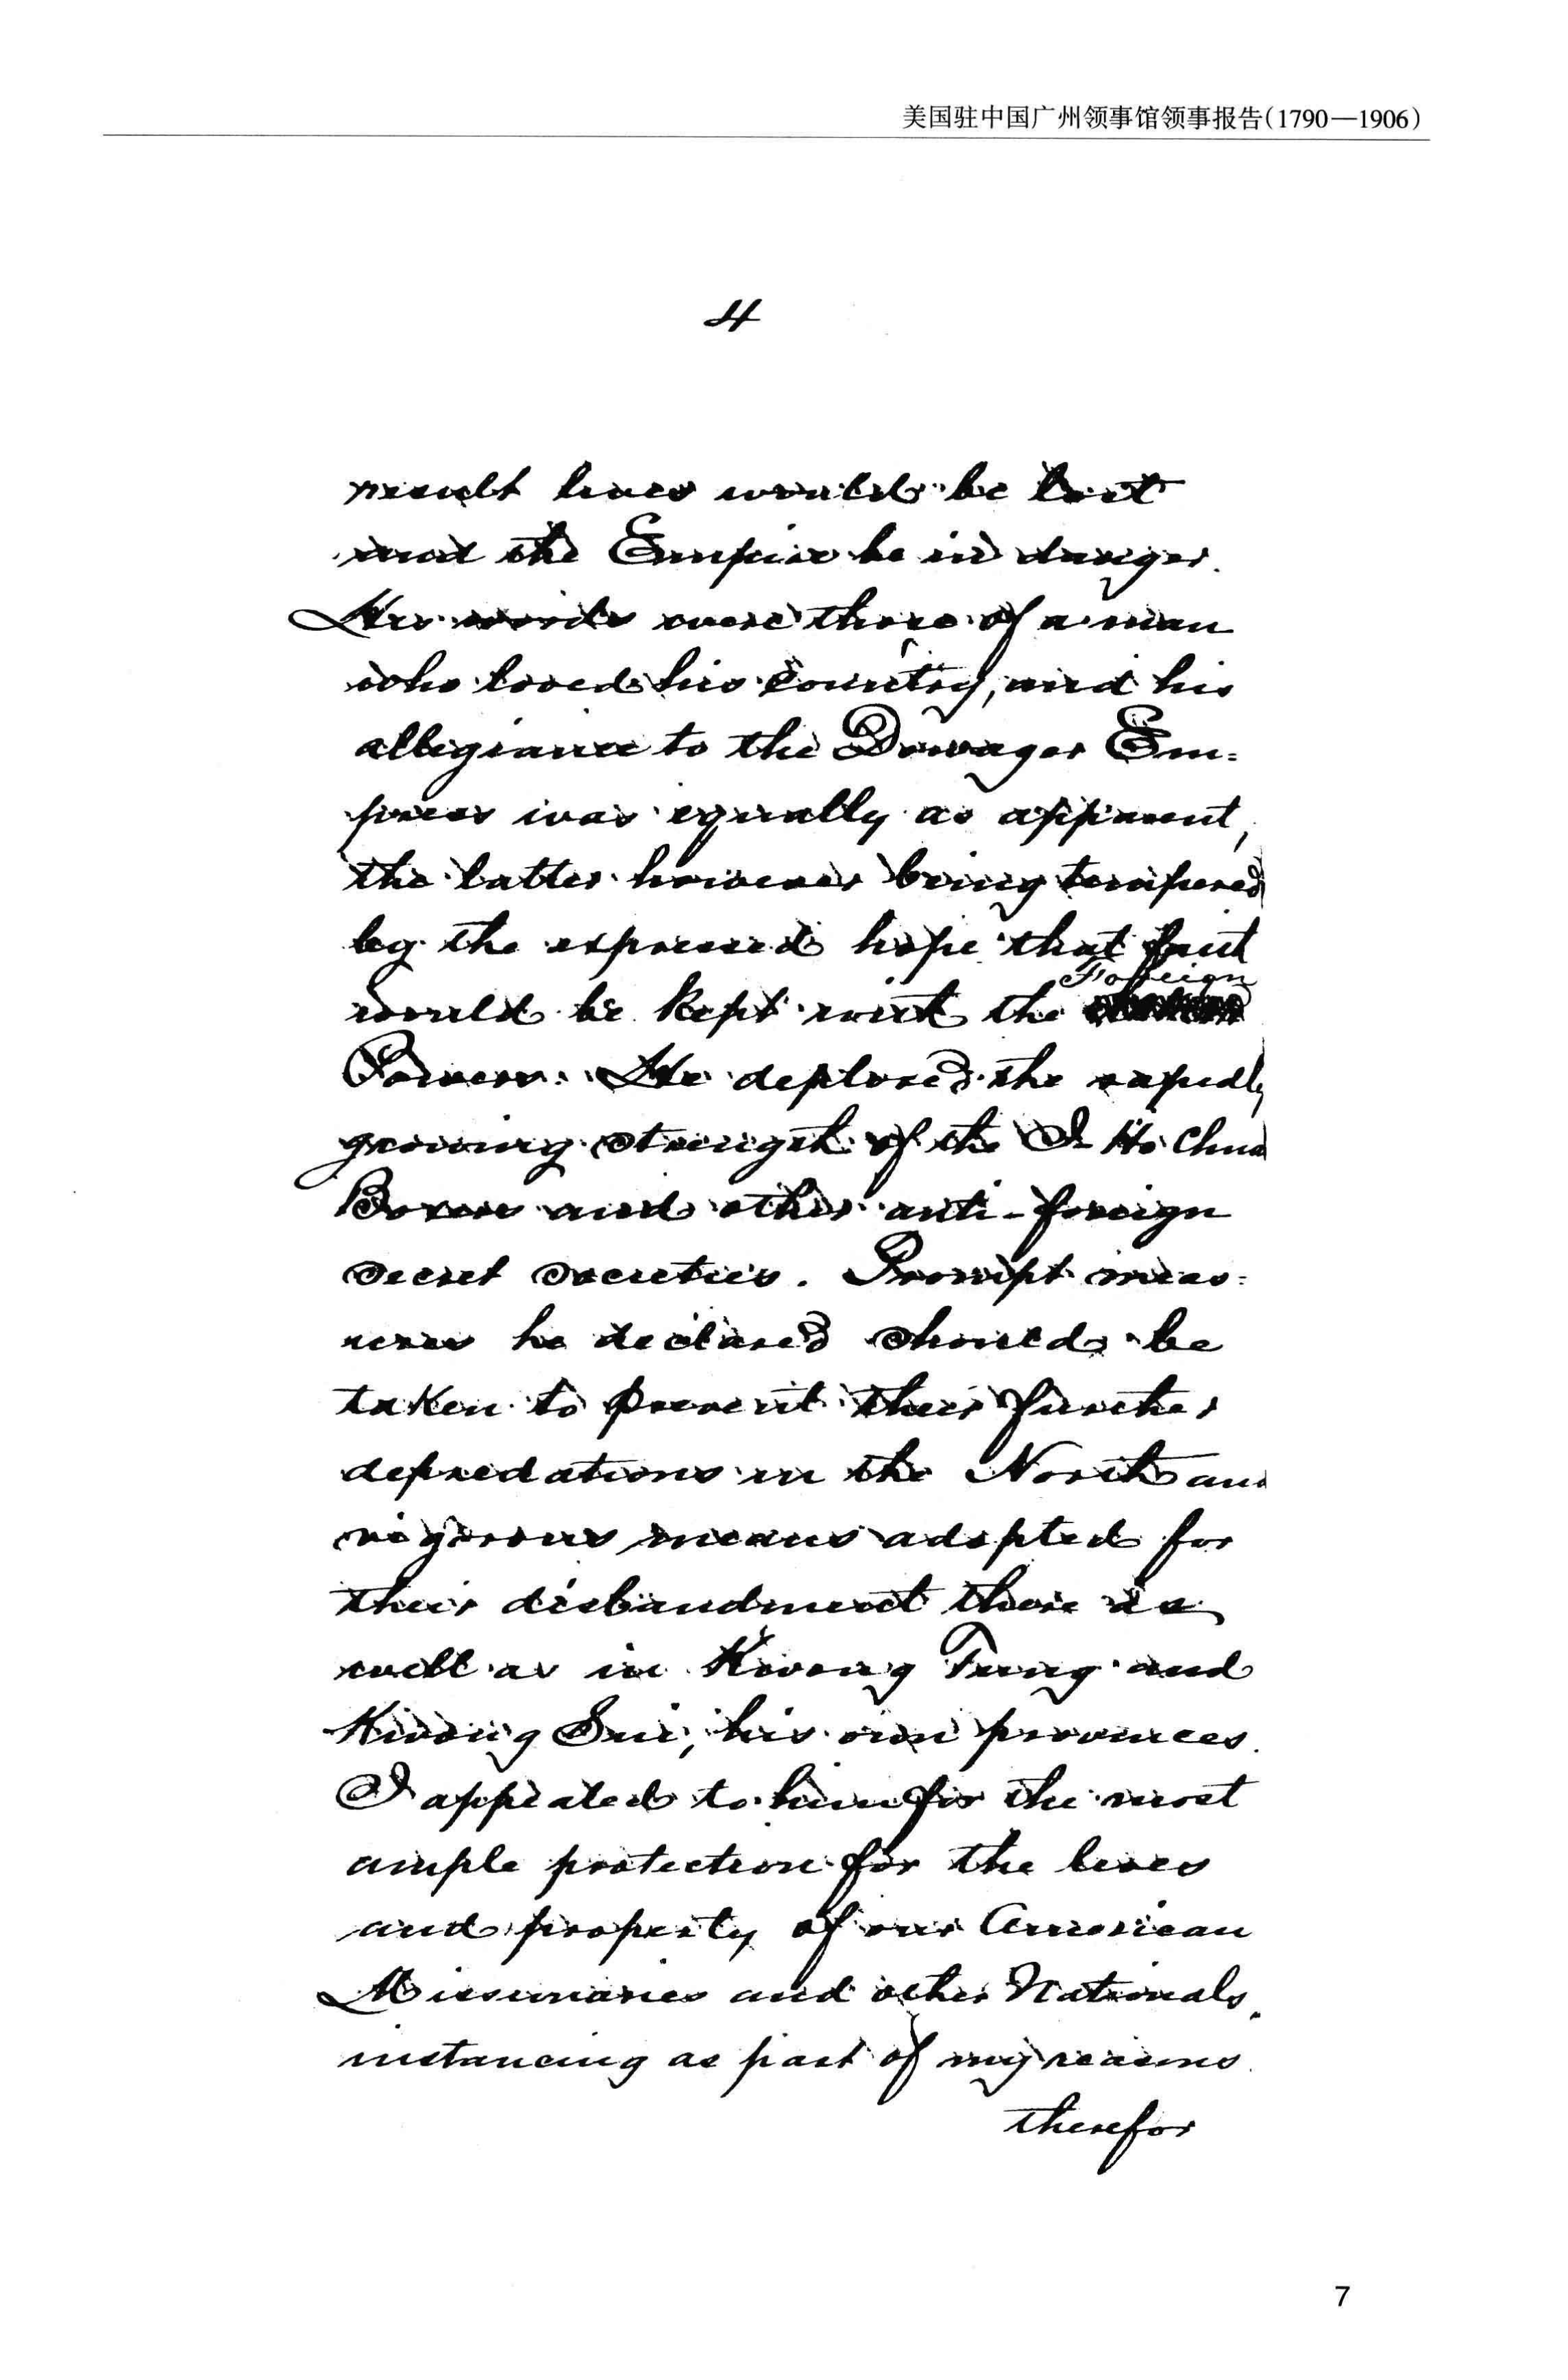 美国驻中国广州领事馆领事报告(1790—1906)
4
result lives would be lost
and the Empire be in danger.
His words were those of a man
who loved his country, and his
allegiance to the Dowager Em=
press was equally as apparent,
the latter however being tempered
by the expressed hope that faith
would be kept with the Foreign
Powers. He deplored the rapidly
growing strength of the I Ho Chuan
Boxers and other anti-foreign
secret societies. Prompt meas=
ures he declared should be
taken to prevent their further
depredations in the North and
vigorous means adopted for
their disbandment there as
well as in Kwong Tung and
Kwong Sui, his own provinces.
I appealed to him for the most
ample protection for the lives
and property of our American
Missionaries and other Nationals,
instancing as part of my reasons
therefor
7